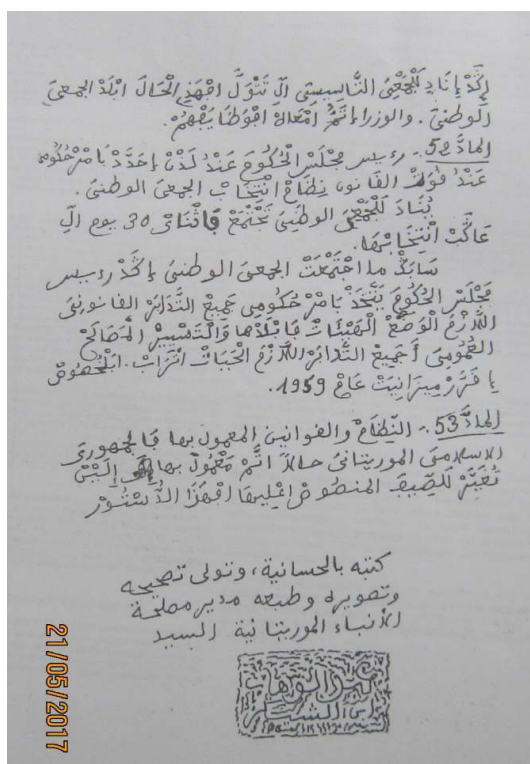 إكَدْ إنَادِ لَجْمْعِيَ التَّأسِيسِيَ الِّ تَتْوَلَّ اجْهَذِ الْحَالَ ابْلَدْ الجمعيَ
الوطنيَ. والوزراء اتَمُّ امْعَاهْ
المادَّ 52. رءيس مجْلسْ الْحُكومَ عَنْدُ لَذْنْ إحَدَّدْ بَامْرْ حُكُومِي
عَنْدُ قُوَّتْ القانون نِظَامْ انْتِخَابْ الجمعيَ الوطنيَ.
لَجْمْعِيَ الوطنِيَ تَجْتَمَعْ فَاثْنَاىْ 30 يوم الِّ
عَاكْبْ انْتِخَابْهَا.
سَابَكْ ما اجْتَمْعَتْ الجمعيَ الوطنيَ إكَدْ رءيس
مجلسْ الحُكُومَ يَتَّخَذْ بَامْرْ حُكومِي جَمِيعْ التَّدَابُرْ القانونيَ
اللَّازْمَ الْوَضْعْ الْهَيْئَاتْ فَابْلَدْهَا وَالتَّسْيِيرْ الْمَصَالِحْ
العُمُومِيَ أجَمِيعْ التَّدَابُرْ اللَّازْمَ الْحَيَاتْ اتْرَابْ. ابْلخُصُوصْ
مِيزَانِيَتْ عَامْ 1959.
المادَّ 53. النِّظَامْ والقوانين المعمول بها فَالجمهوريَ
الاسلاميَ الموريتانيَ حالاً اتَّمْ مَعْمُولْ بها إلَيْنْ
تُغَيَّرْ لَلصِّيغَ المنصُوصْ اعْلِيهَا افْهَذَا الدُّسْتُورْ
كتبه بالحسانية، وتولى تصحيحه
وتصويره وطبعه مدير مصلحة
الأنباء الموريتانية السيد
21/05/2017